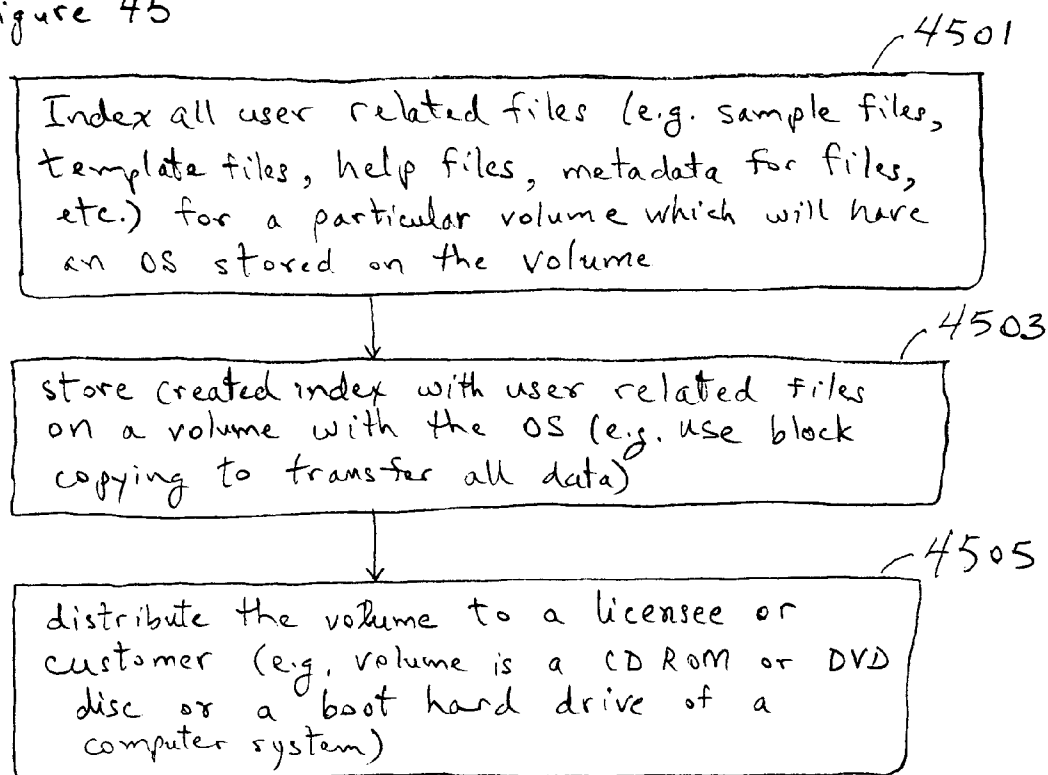 igure 45
4501
Index all user related files (e.g. sample files,
template files, help files, metadata for files,
etc.) for a particular volume which will have
an OS stored on the volume
4503
store created index with user related files
on a volume with the OS (e.g. use block
copying to transfer all data)
4505
distribute the volume to a licensee or
customer (e.g. volume is a CD ROM or DVD
disc or a boot hard drive of a
computer system)